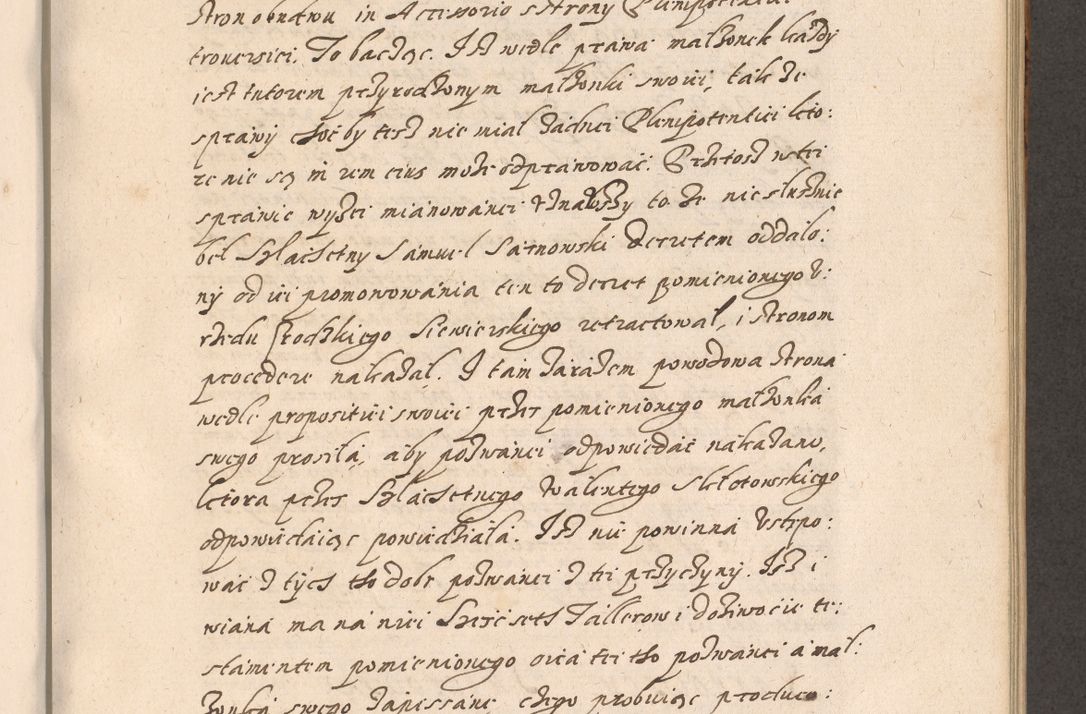 Stron obudwu in Accessorio z strony Plenipotentii
trouersiei. To bacząc. Iż wedle prawa małżonek każdy
iest tutorem przyrodzonym małżonki swoiei, tak że
sprawy choćby tesz nie miał żadnei Plenipotentiei kto:
re nie są in rem eius może odprawować. Przetosz w tei
sprawie wyżei mianowanei uznawszy to że nie słusznie
beł Szlachetny Samuel Sarnowski decretem oddalo:
ny od iei promowowania ten to decret pomienionego V:
rzedu Grodzkiego Siewierskiego retractował, i stronom
procedere nakazał. I tam zarazem powodowa strona
wedle propositiei swoiei przez pomienionego małżonka
swego prosiła, aby pozwanei odpowiedać nakazano,
ktora przez Szlachetnego Walentego Sklotowskiego
odpowiedaiąc powiedziała. Isz nie powinna Vstępo:
wać z tych tho dobr pozwanei z tei przyczyny. Isz i
wiana ma na niei Sześćseth Tallerow i dożiwocie te:
stamentem pomienionego oica tei tho pozwanei a mał:
żonka swego zapissane czego probuiąc produco: